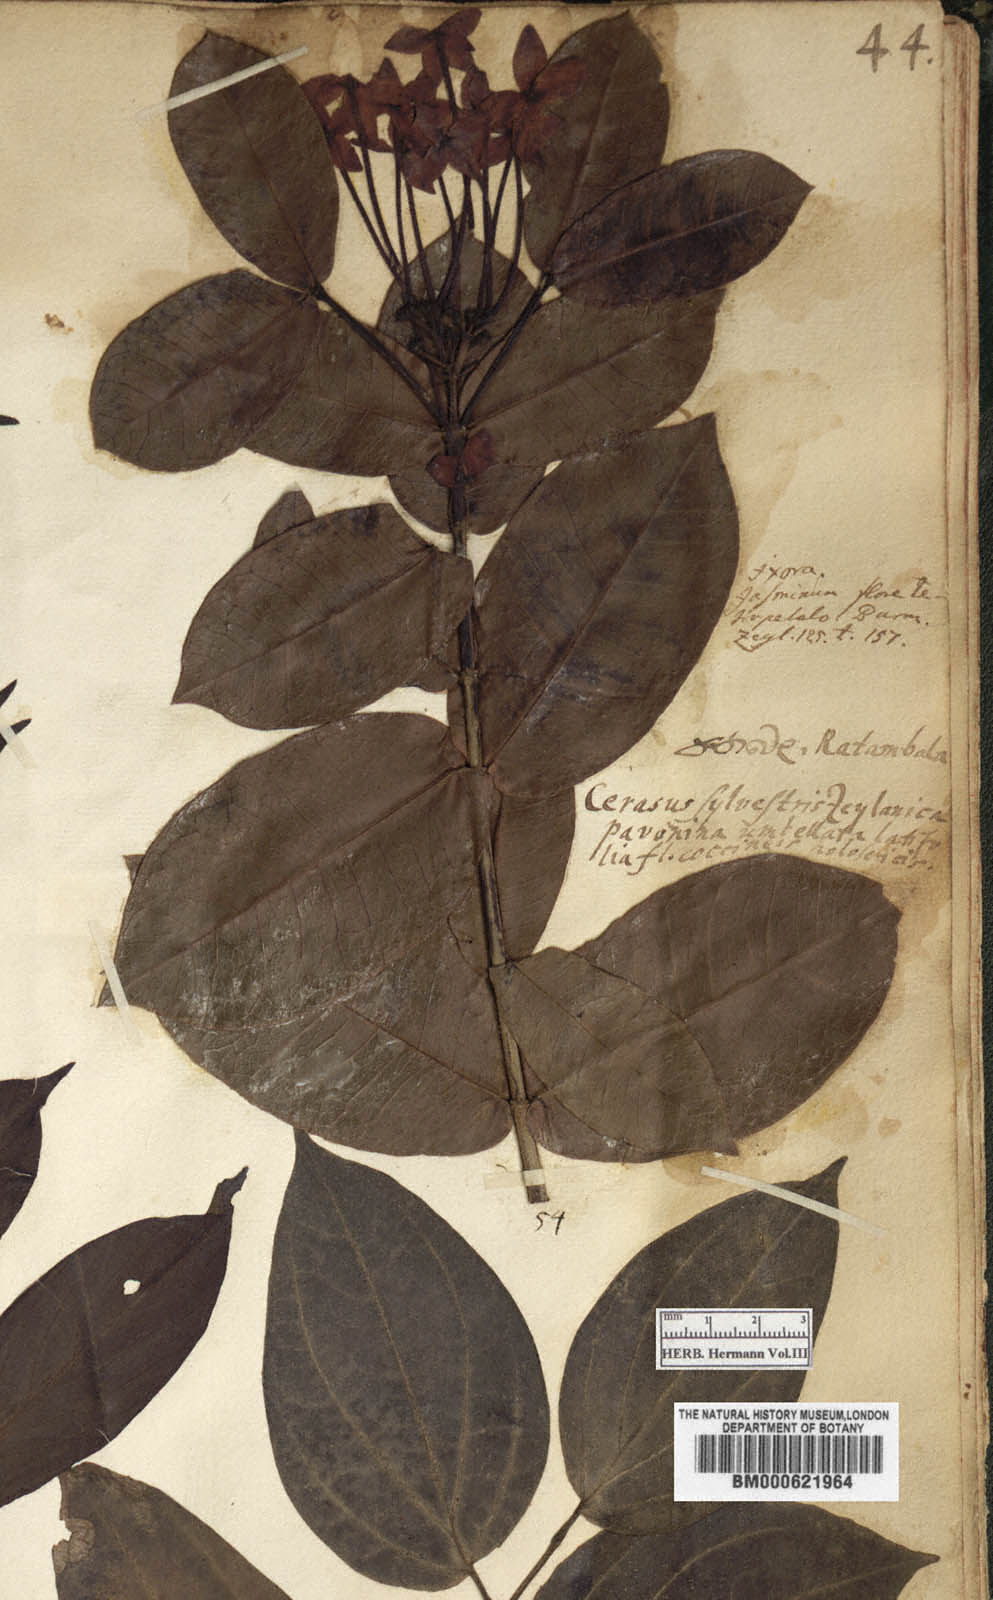 44.
Ixora.
Jasminum flore te-
trapetalo Burm.
Zeyl. 125. t. 157.
Ratambala
Cerasus sylvestris Zeylanica
pavonina umbellata latifo
lia fl. coccineis
54
mm 1 2 3
HERB. Hermann Vol.III
THE NATURAL HISTORY MUSEUM,LONDON
DEPARTMENT OF BOTANY
BM000621964